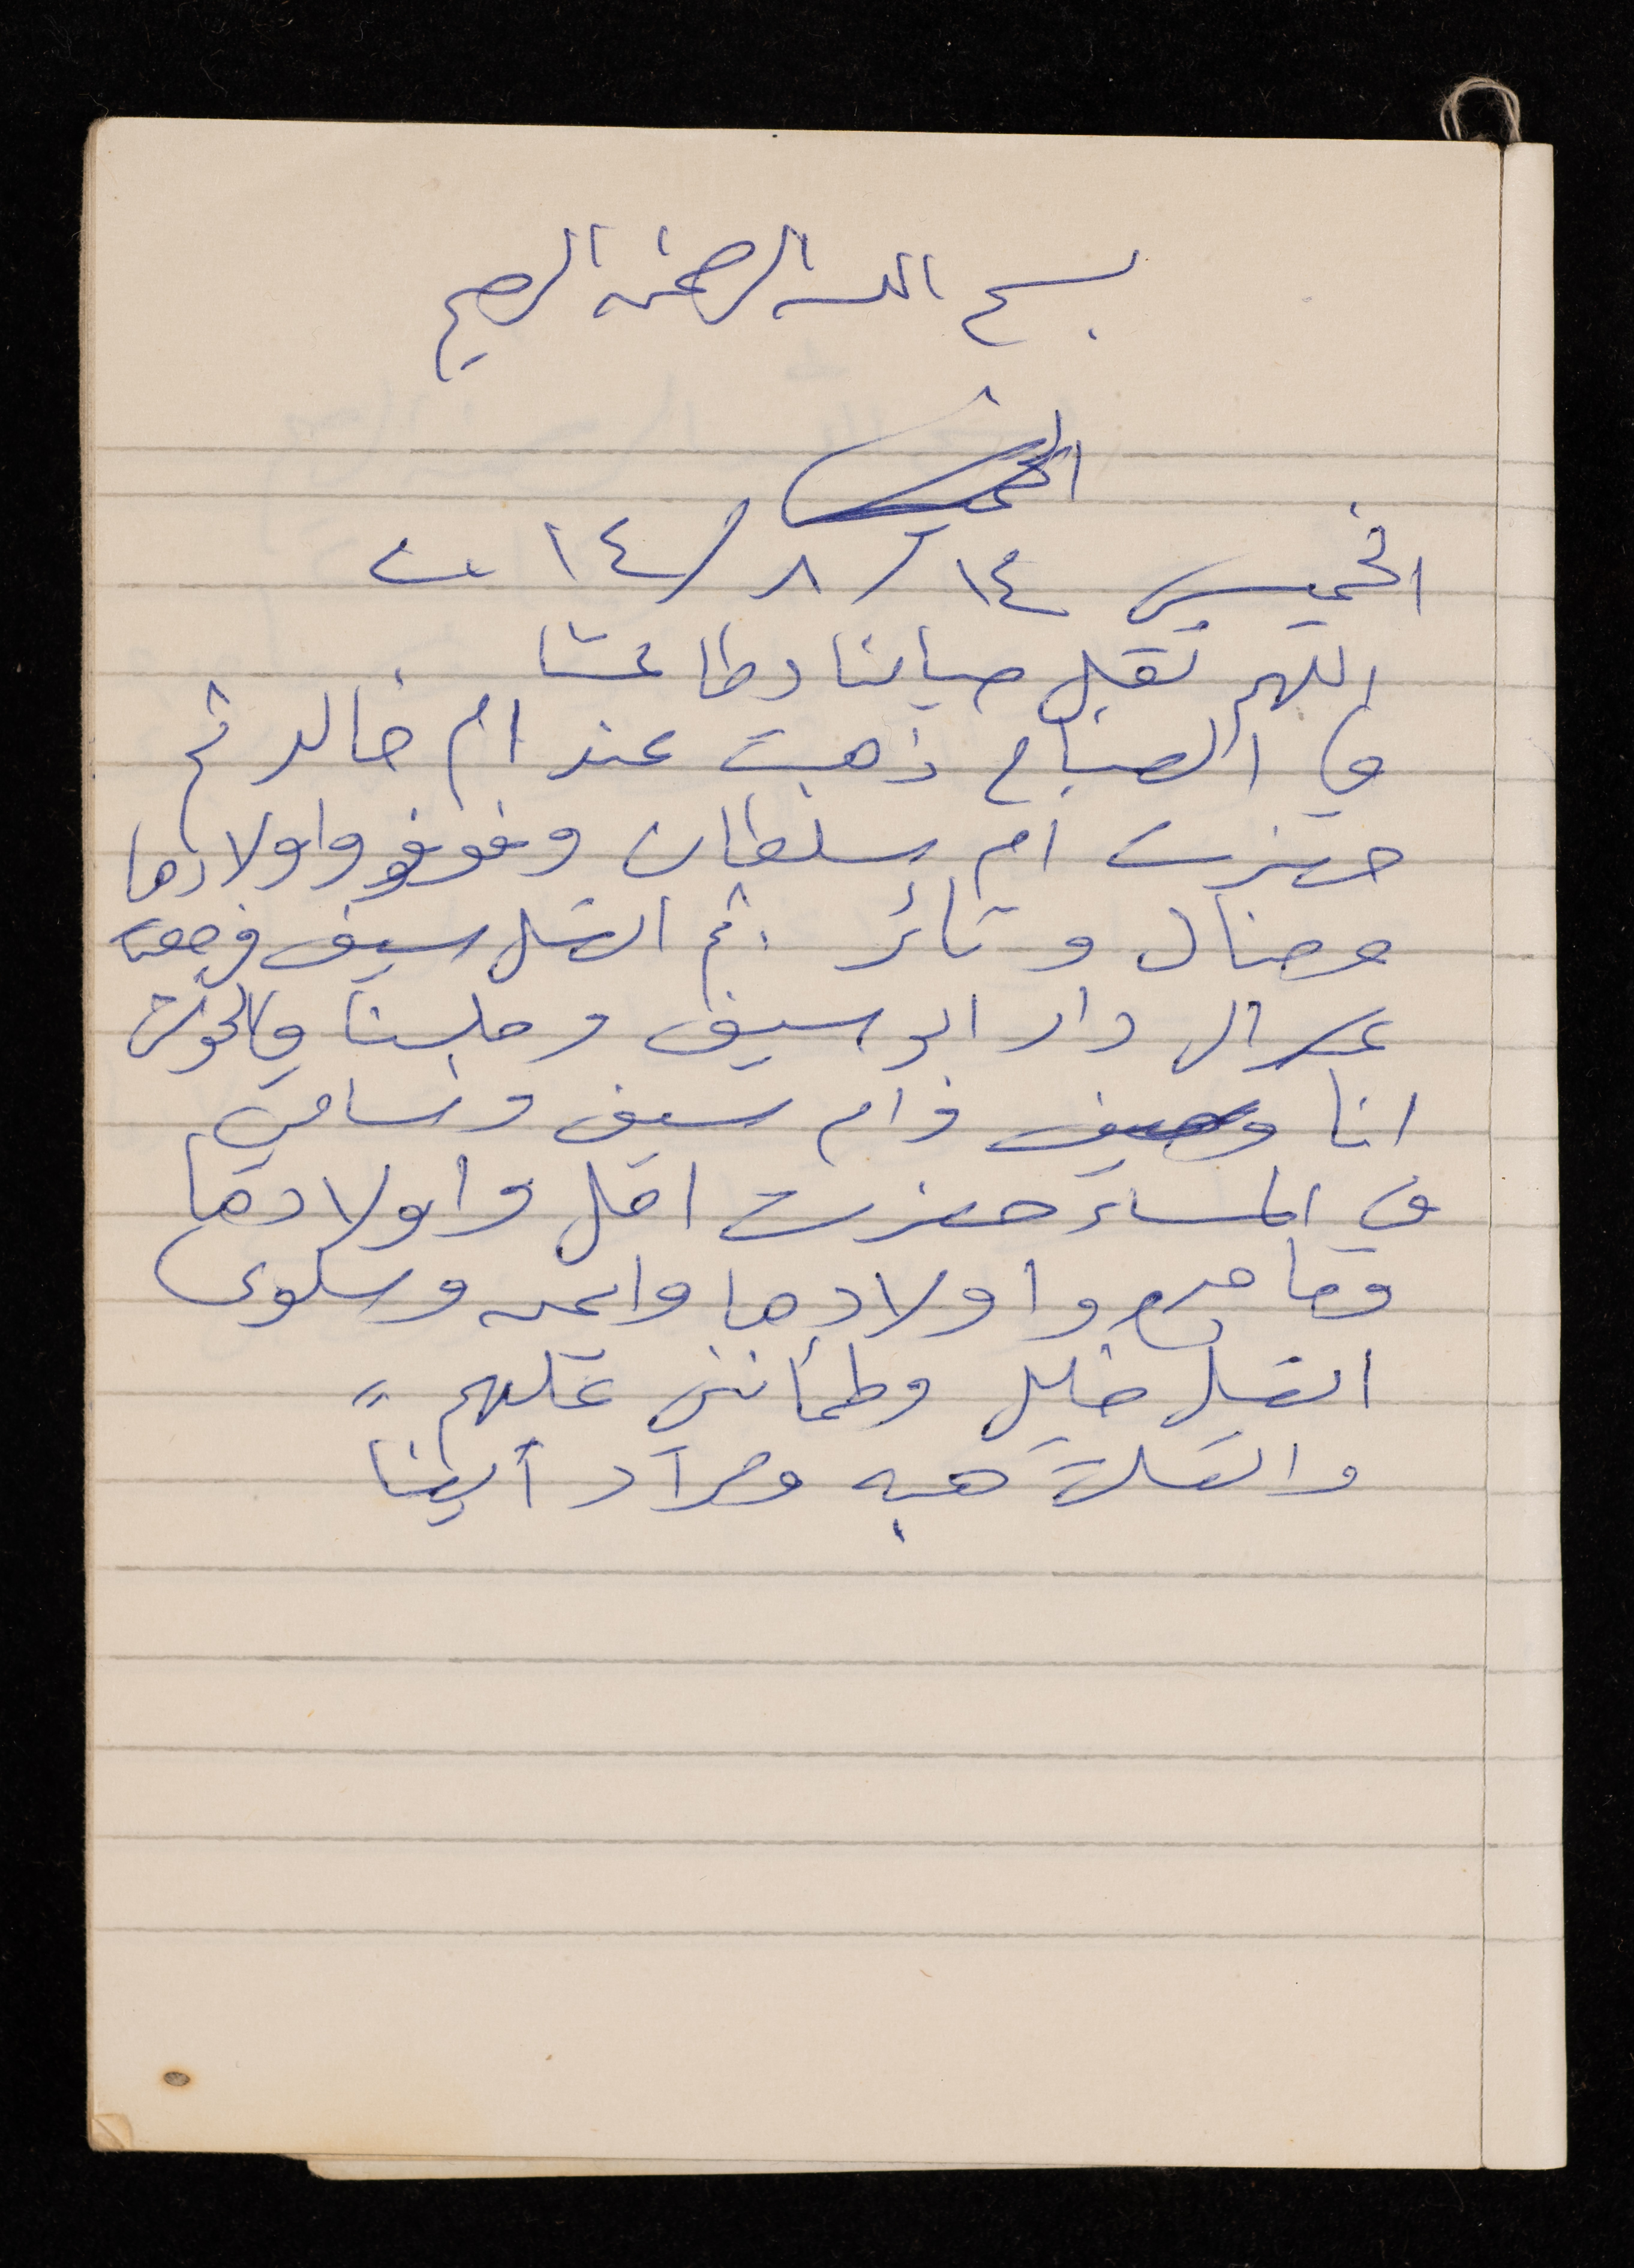 بسم الله الرحمن الرحيم
الخميس
الخميس ١٤/٨/١٤ ت
اللهم تقبل صيامنا وطاعتنا
في الصباح ذهبت عند ام خالد ثم
حضرت ام سلطان وفوفو واولادها
ومنال وثائر ثم اتصل سيف فرجعت
عـ دار ابو سيف وجلسنا في الحوش
انا وسيف وام سيف وسامي
في المساء حضرت امل واولادها
واولادها وايمن وسلوى
اتصل خليل وطمأنني عليهم "
واتصلت هبه ومراد أيضا